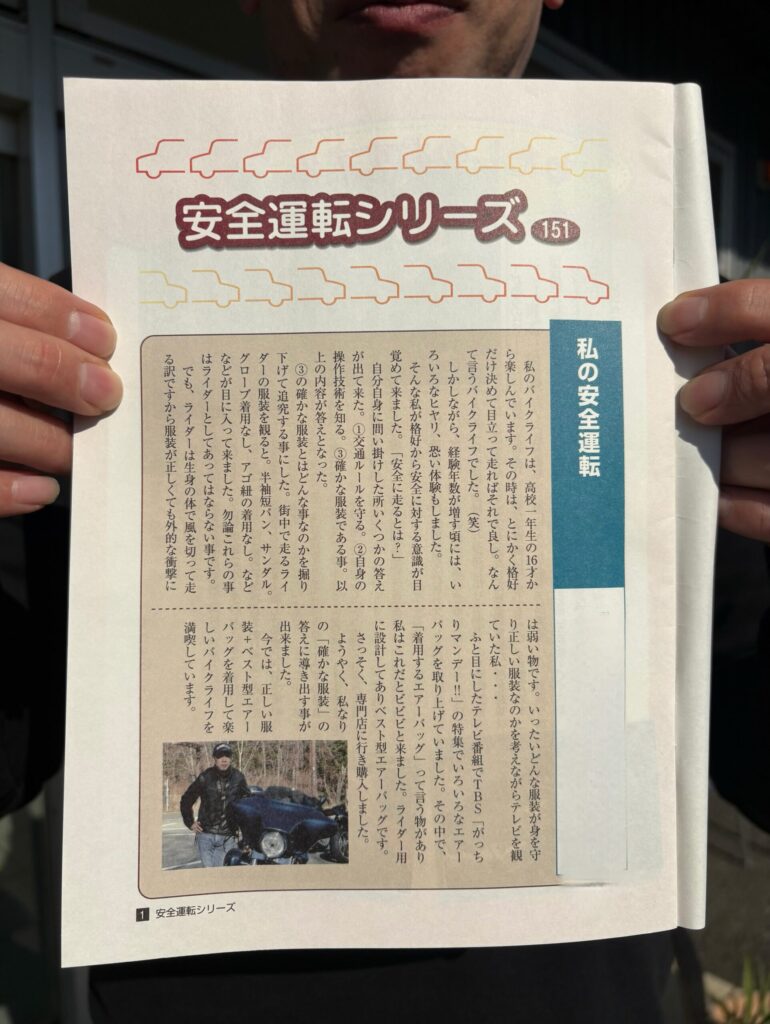 安全運転シリーズ 151
私の安全運転
私のバイクライフは、高校一年生の16才か
ら楽しんでいます。その時は、とにかく格好
だけ決めて目立って走ればそれで良し。なん
て言うバイクライフでした。(笑)
しかしながら、経験年数が増す頃には、い
ろいろなヒヤリ、恐い体験もしました。
そんな私が格好から安全に対する意識が目
覚めて来ました。「安全に走るとは?」
自分自身に問い掛けした所いくつかの答え
が出て来た。①交通ルールを守る。②自身の
操作技術を知る。③確かな服装である事。以
上の内容が答えとなった。
③の確かな服装とはどんな事なのかを掘り
下げて追究する事にした。街中で走るライ
ダーの服装を観ると。半袖短パン、サンダル。
グローブ着用なし、アゴ紐の着用なし。など
などが目に入って来ました。勿論これらの事
はライダーとしてあってはならない事です。
でも、ライダーは生身の体で風を切って走
る訳ですから服装が正しくても外的な衝撃に
は弱い物です。いったいどんな服装が身を守
り正しい服装なのかを考えながらテレビを観
ていた私・・・
ふと目にしたテレビ番組でTBS「がっち
りマンデー!!」の特集でいろいろなエアー
バッグを取り上げていました。その中で、
「着用するエアーバッグ」って言う物があり
私はこれだとビビビと来ました。ライダー用
に設計してありベスト型エアーバッグです。
さっそく、専門店に行き購入しました。
ようやく、私なり
の「確かな服装」の
答えに導き出す事が
出来ました。
今では、正しい服
装+ベスト型エアー
バッグを着用して楽
しいバイクライフを
満喫しています。
1 安全運転シリーズ